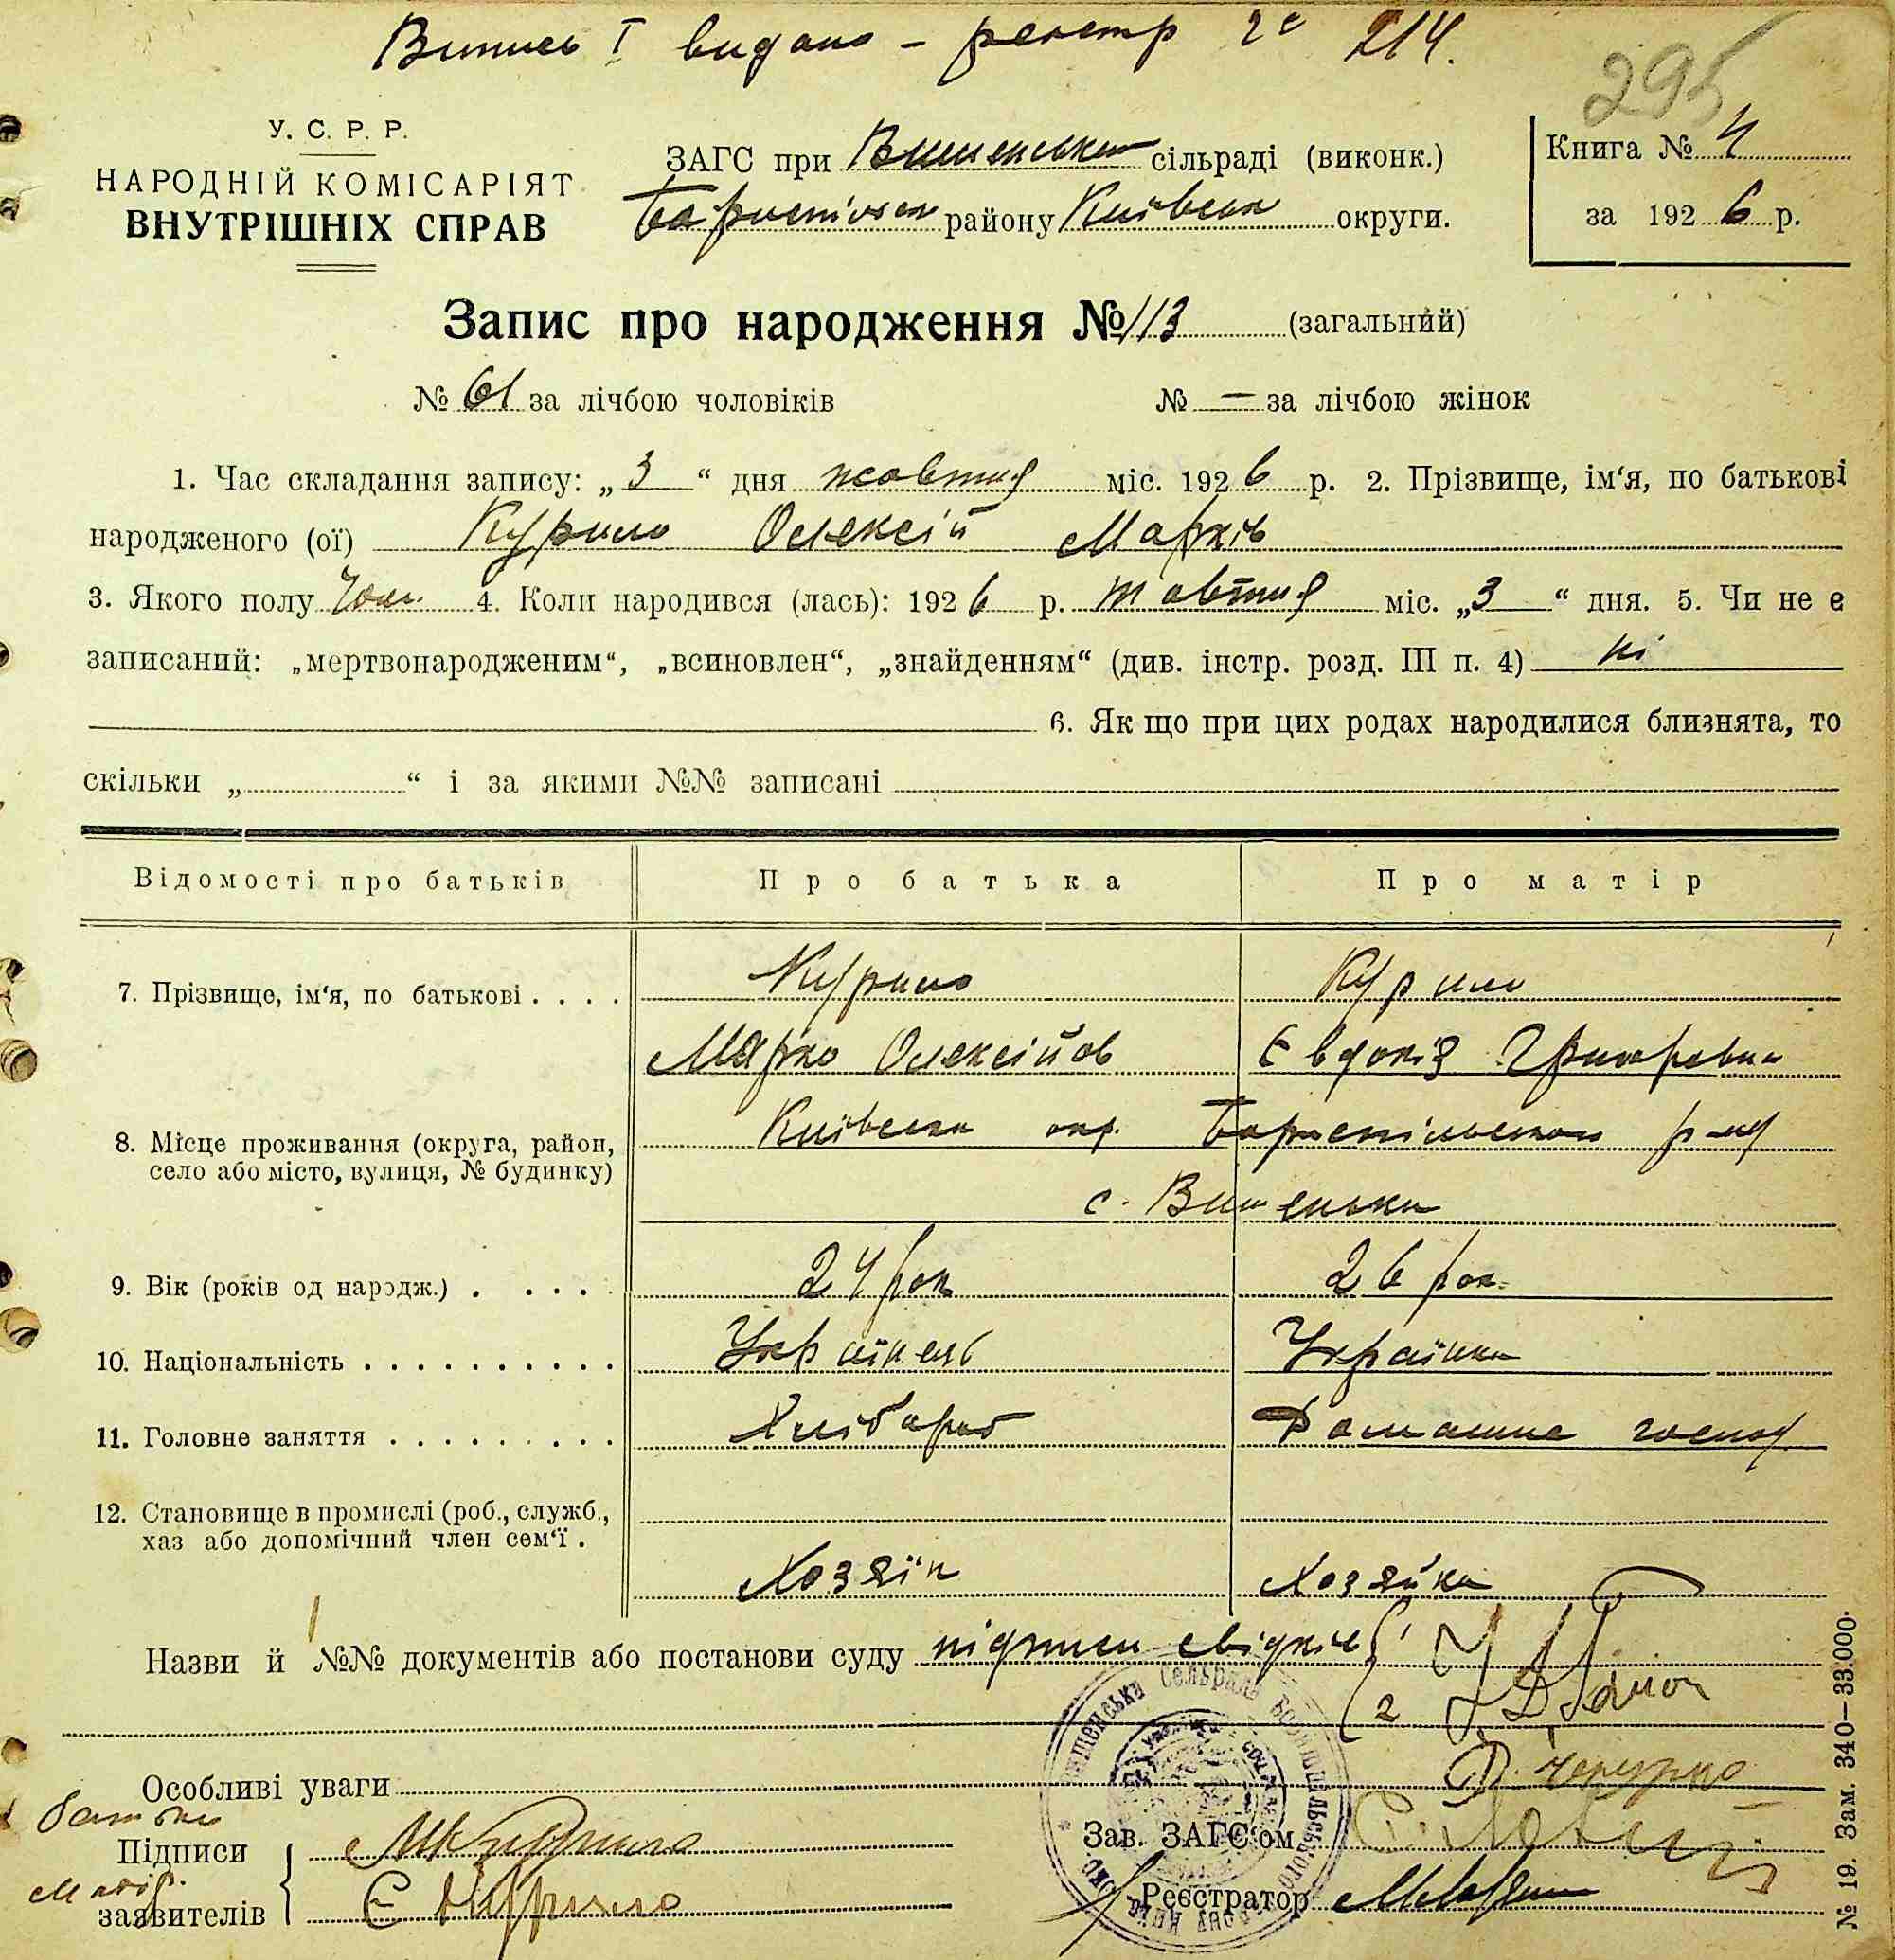 Випись І видано – реєстр № 214.
295
У. С. Р. Р.
НАРОДНІЙ КОМІСАРІЯТ
ВНУТРІШНІХ СПРАВ
ЗАГС при Вишенській сільраді (виконк.)
Бориспільськ району Київськ округи.
Книга № 4
за 1926 р.
Запис про народження № 113 (загальний)
№ 61 за лічбою чоловіків № — за лічбою жінок
1. Час складання запису: „3“ дня жовтня міс. 1926 р. 2. Прізвище, ім‘я, по батькові
народженого (ої) Курило Олексій Марків
3. Якого полу Чол. 4. Коли народився (лась): 1926 р. жовтня міс. „3“ дня. 5. Чи не є
записаний: „мертвонародженим“, „всиновлен“, „знайденням“ (див. інстр. розд. III п. 4) ні
6. Як що при цих родах народилися близнята, то
скільки „ “ і за якими №№ записані
Відомості про батьків Про батька Про матір
7. Прізвище, ім‘я, по батькові . . . . Курило Курило
Марко Олексійов Євдокія Григоровна
8. Місце проживання (округа, район, Київська окр. Бориспільського р-ну
село або місто, вулиця, № будинку)
с. Вишеньки
9. Вік (років од народж.) . . . . . 24 рок 26 рок.
10. Національність . . . . . . . . . . . Українець Українка
11. Головне заняття . . . . . . . . . Хлібороб Домашнє господ
12. Становище в промислі (роб., служб.,
хаз або допомічний член сем‘ї .
Хозяїн Хозяйка
Назви й №№ документів або постанови суду підписи свідків 1
2
Особливі уваги
батько
Підписи МКурило Зав. ЗАГС‘ом
матір.
заявителів Є Курило Реєстратор
№ 19. Зам. 340—33.000.